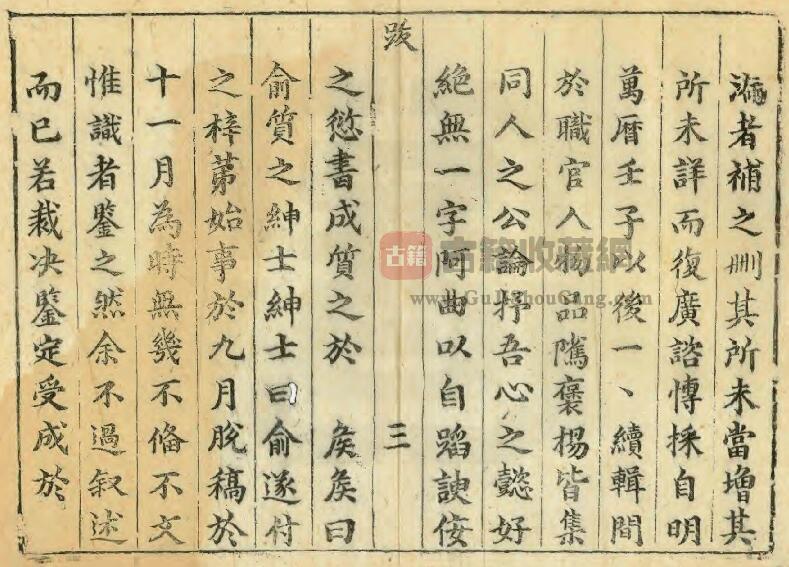 漏者補之刪其所未當增其
所未詳而復廣諮愽採自明
萬曆壬子以後一、續輯間
於職官人物品隲褒揚皆集
同人之公論抒吾心之懿好
絶無一字阿曲以自蹈諛佞
跋 三
之愆書成質之於 矦矦曰
俞質之紳士紳士曰俞遂付
之梓苐始事於九月脫稿於
十一月為時無幾不俻不文
惟識者鑒之然余不過叙述
而已若裁决鑒定受成於
古籍 古籍收藏網
www.GuJiShouCang.com